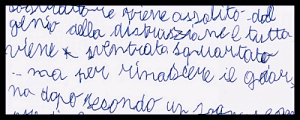 viene assalito dal
genio della distruzione e tutta
viene sventrata squartata
... ma per rinascere il gior
no dopo secondo un